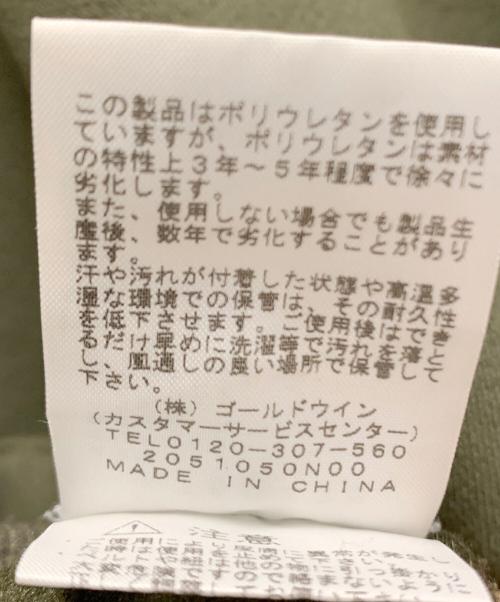 この製品はポリウレタンを使用し
ていますが、ポリウレタンは素材
の特性上3年～5年程度で徐々に
劣化します。
また、使用しない場合でも製品生
産後、数年で劣化することがあり
ます。
汗や汚れが付着した状態や高温多
湿な環境での保管は、その耐久性
を低下させます。ご使用後はでき
るだけ早めに洗濯等で汚れを落と
し、風通しの良い場所で保管して
下さい。
(株) ゴールドウイン
(カスタマーサービスセンター)
TEL0120-307-560
2051050N00
MADE IN CHINA